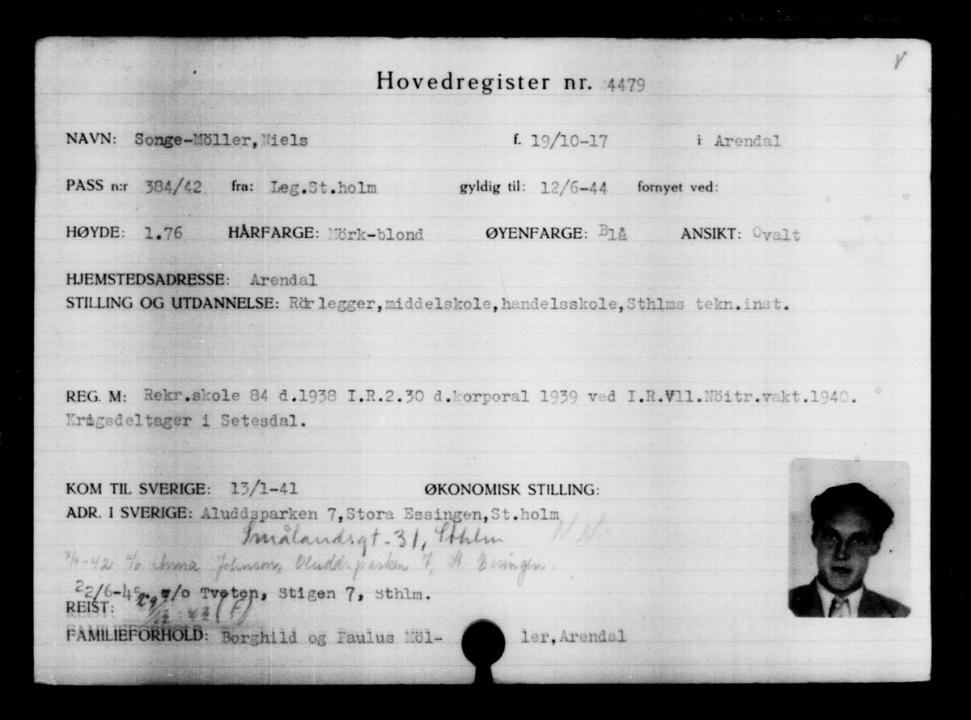 Hovedregister nr. 4479
NAVN: Songe-Möller,Niels f. 19/10-17 i Arendal
PASS n:r 384/42 fra: Leg.St.holm gyldig til: 12/6-44 fornyet ved:
HØYDE: 1.76 HÅRFARGE: Mörk-blond ØYENFARGE: Blå ANSIKT: Ovalt
HJEMSTEDSADRESSE: Arendal
STILLING OG UTDANNELSE: Rörlegger,middelskole,handelsskole,Sthlms tekn.inst.
REG. M: Rekr.skole 84 d.1938 I.R.2.30 d.korporal 1939 ved I.R.Vll.Nöitr.vakt.1940.
Krigsdeltager i Setesdal.
KOM TIL SVERIGE: 13/1-41 ØKONOMISK STILLING:
ADR. I SVERIGE: Aluddsparken 7,Stora Essingen,St.holm
Smålandsgt. 31, Sthlm N.N.
-42 c/o Anna Johnson, Aluddsparken 7, St. Essingen.
22/6-45 c/o Tveten, Stigen 7, Sthlm.
REIST:
FAMILIEFORHOLD: Borghild og Paulus Möl- ler,Arendal